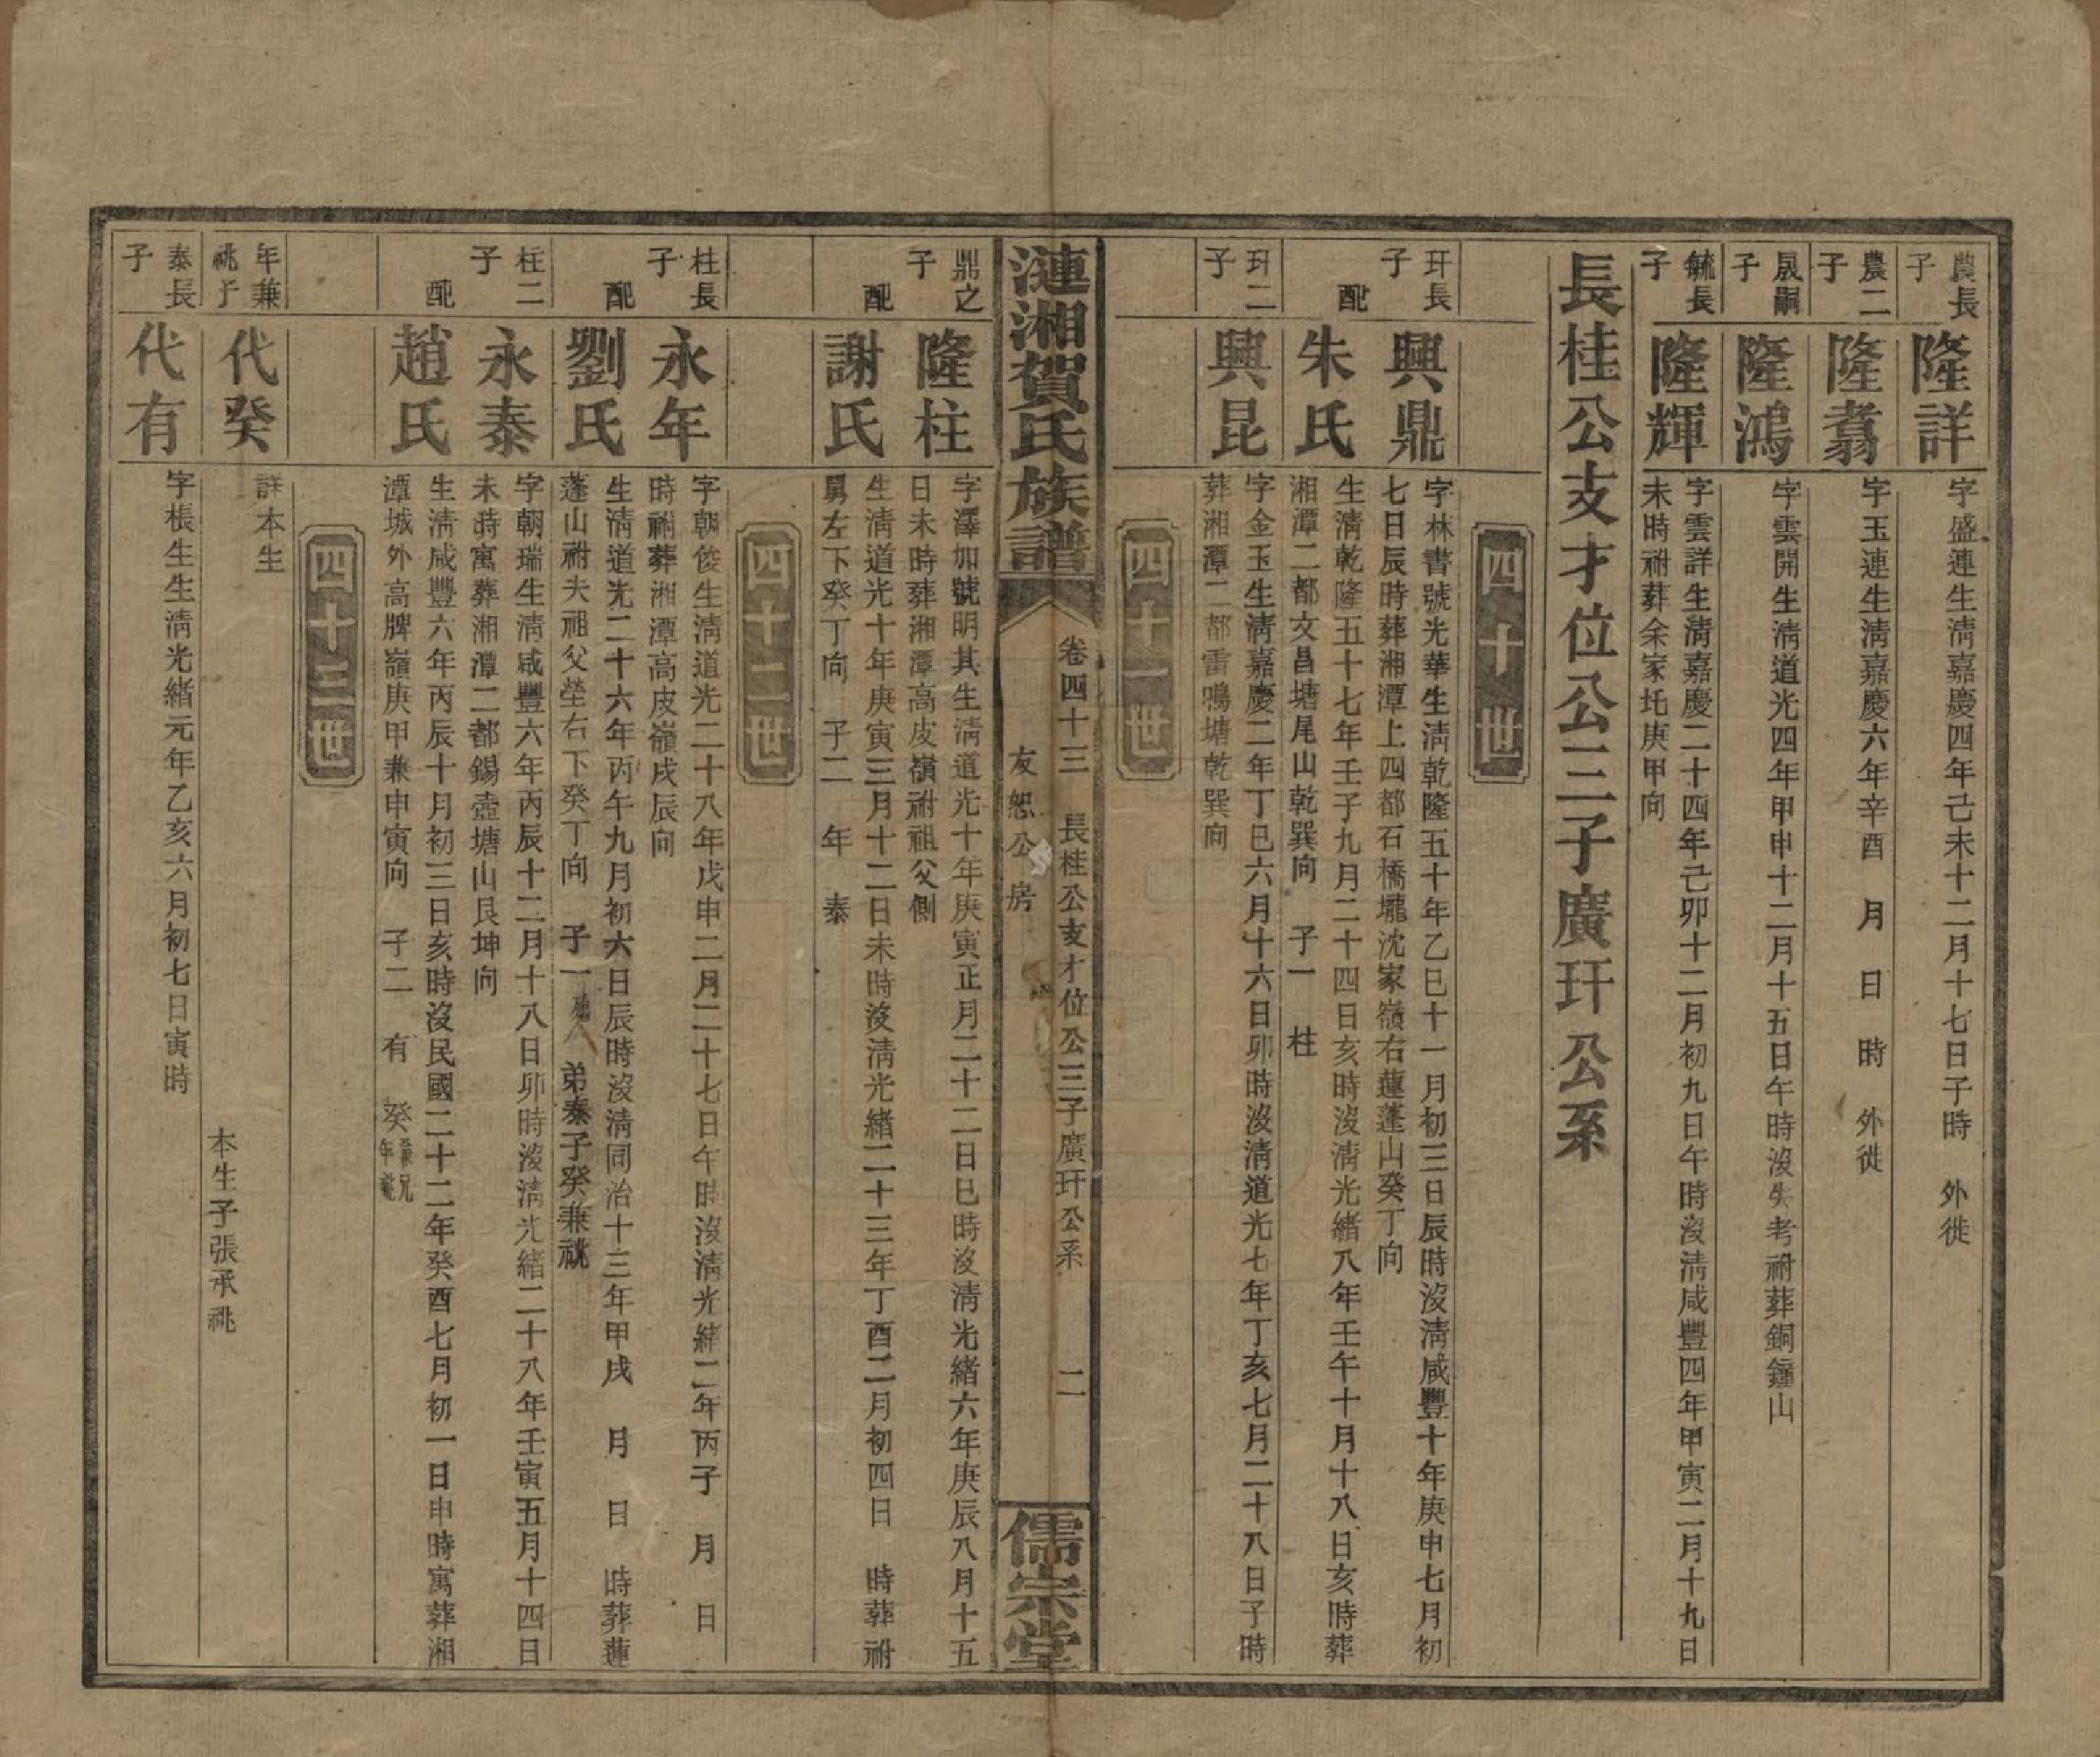 農長子
隆詳
字盛連生淸嘉慶四年己未十二月十七日子時　外徙
農二子
隆翥
字玉連生淸嘉慶六年辛酉　月　日　時　外徙
晟嗣子
隆鴻
字雲開生淸道光四年甲申十二月十五日午時沒失考祔葬銅鐘山
毓長子
隆輝
字雲詳生淸嘉慶二十四年己卯十二月初九日午時沒淸咸豐四年甲寅二月十九日
未時祔葬余家圫庚甲向
長桂公支才位公三子廣玕公系
四十世
玕長子
興鼎
字林書號光華生淸乾隆五十年乙巳十一月初三日辰時沒淸咸豐十年庚申七月初
七日辰時葬湘潭上四都石橋壠沈家嶺右蓮蓬山癸丁向
配
朱氏
生淸乾隆五十七年壬子九月二十四日亥時沒淸光緒八年壬午十月十八日亥時葬
湘潭二都文昌塘尾山乾巽向　子一　柱
玕二子
興昆
字金玉生淸嘉慶二年丁巳六月十六日卯時沒淸道光七年丁亥七月二十八日子時
葬湘潭二都雷鳴塘乾巽向
四十一世
漣湘賀氏族譜
卷四十三　長桂公支才位公三子廣玕公系　二
友恕公房
儒宗堂
鼎之子
隆柱
字澤加號明其生淸道光十年庚寅正月二十二日巳時沒淸光緒六年庚辰八月十五
日未時葬湘潭高皮嶺祔祖父側
配
謝氏
生淸道光十年庚寅三月十二日未時沒淸光緒二十三年丁酉二月初四日　時葬祔
舅左下癸丁向　子二　年　泰
四十二世
柱長子
永年
字朝俊生淸道光二十八年戊申二月二十七日午時沒淸光緒二年丙子　月　日
時祔葬湘潭高皮嶺戌辰向
配
劉氏
生淸道光二十六年丙午九月初六日辰時沒淸同治十三年甲戌　月　日　時葬蓮
蓬山祔夫祖父塋右下癸丁向　子一　弟泰子癸兼祧
柱二子
永泰
字朝瑞生淸咸豐六年丙辰十二月十八日卯時沒淸光緒二十八年壬寅五月十四日
未時寓葬湘潭二都錫壺塘山艮坤向
配
趙氏
生淸咸豐六年丙辰十月初三日亥時沒民國二十二年癸酉七月初一日申時寓葬湘
潭城外高脾嶺庚甲兼申寅向　子二　有　癸兼兄年祧
四十三世
年兼祧子
代癸
詳本生
本生子張承祧
泰長子
代有
字棖生生淸光緒元年乙亥六月初七日寅時